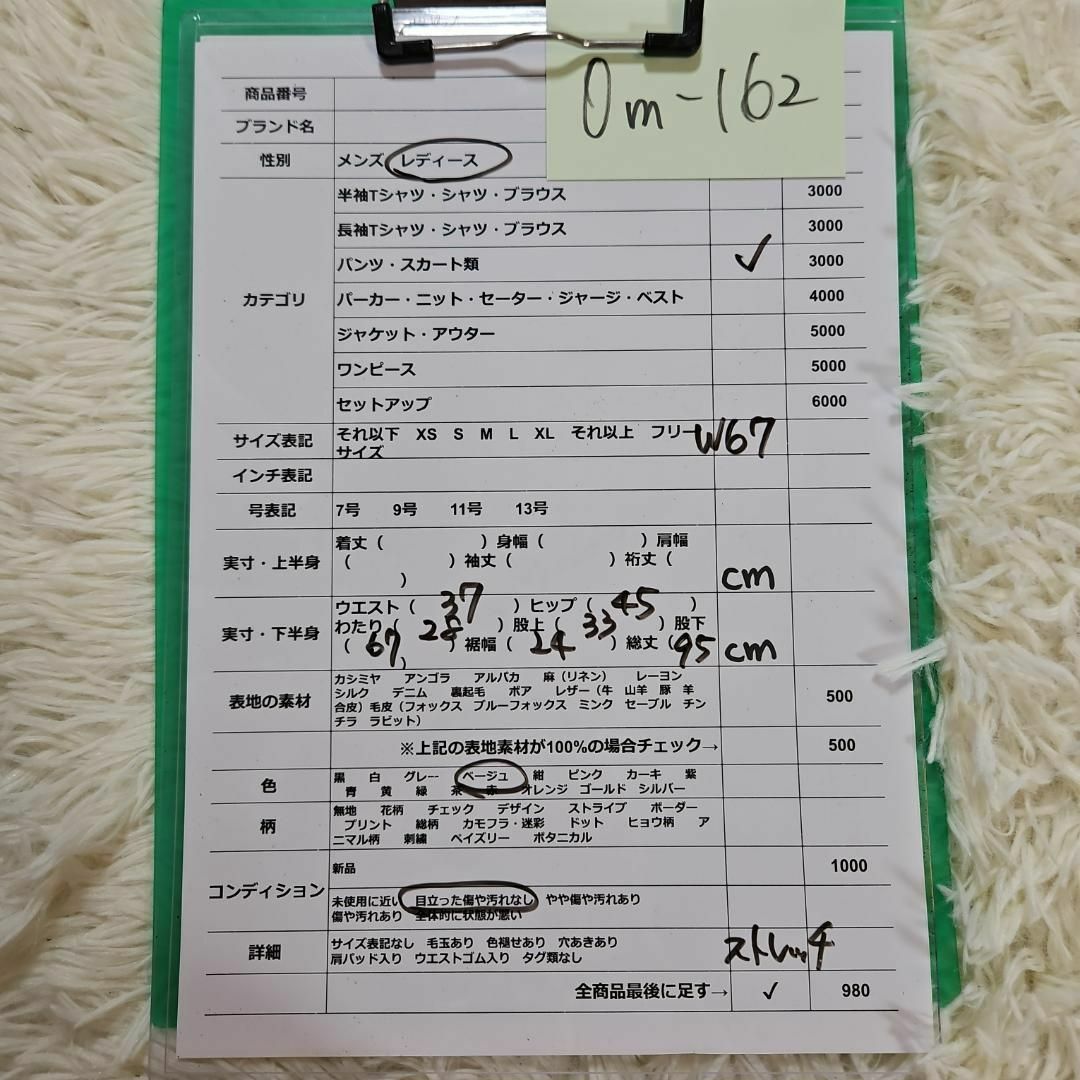 Om-162
商品番号
ブランド名
性別 メンズ レディース
半袖Tシャツ・シャツ・ブラウス 3000
長袖Tシャツ・シャツ・ブラウス 3000
パンツ・スカート類 ✓ 3000
カテゴリ パーカー・ニット・セーター・ジャージ・ベスト 4000
ジャケット・アウター 5000
ワンピース 5000
セットアップ 6000
サイズ表記 それ以下 XS S M L XL それ以上 フリー W67
サイズ
インチ表記
号表記 7号 9号 11号 13号
着丈（ ）身幅（ ）肩幅
実寸・上半身 （ ）袖丈（ ）裄丈（
） cm
ウエスト（ 37 ）ヒップ（ 45 ）
実寸・下半身 わたり（ 24 ）股上（ 33 ）股下
（ 67 ）裾幅（ 24 ）総丈（95 cm
）
カシミヤ アンゴラ アルパカ 麻（リネン） レーヨン
表地の素材 シルク デニム 裏起毛 ボア レザー（牛 山羊 豚 羊 500
合皮）毛皮（フォックス ブルーフォックス ミンク セーブル チン
チラ ラビット）
※上記の表地素材が100%の場合チェック→ 500
色 黒 白 グレー ベージュ 紺 ピンク カーキ 紫
青 黄 緑 茶 赤 オレンジ ゴールド シルバー
無地 花柄 チェック デザイン ストライプ ボーダー
柄 プリント 総柄 カモフラ・迷彩 ドット ヒョウ柄 ア
ニマル柄 刺繍 ペイズリー ボタニカル
新品 1000
コンディション
未使用に近い 目立った傷や汚れなし やや傷や汚れあり
傷や汚れあり 全体的に状態が悪い
詳細 サイズ表記なし 毛玉あり 色褪せあり 穴あきあり ストレッチ
肩パッド入り ウエストゴム入り タグ類なし
全商品最後に足す→ ✓ 980